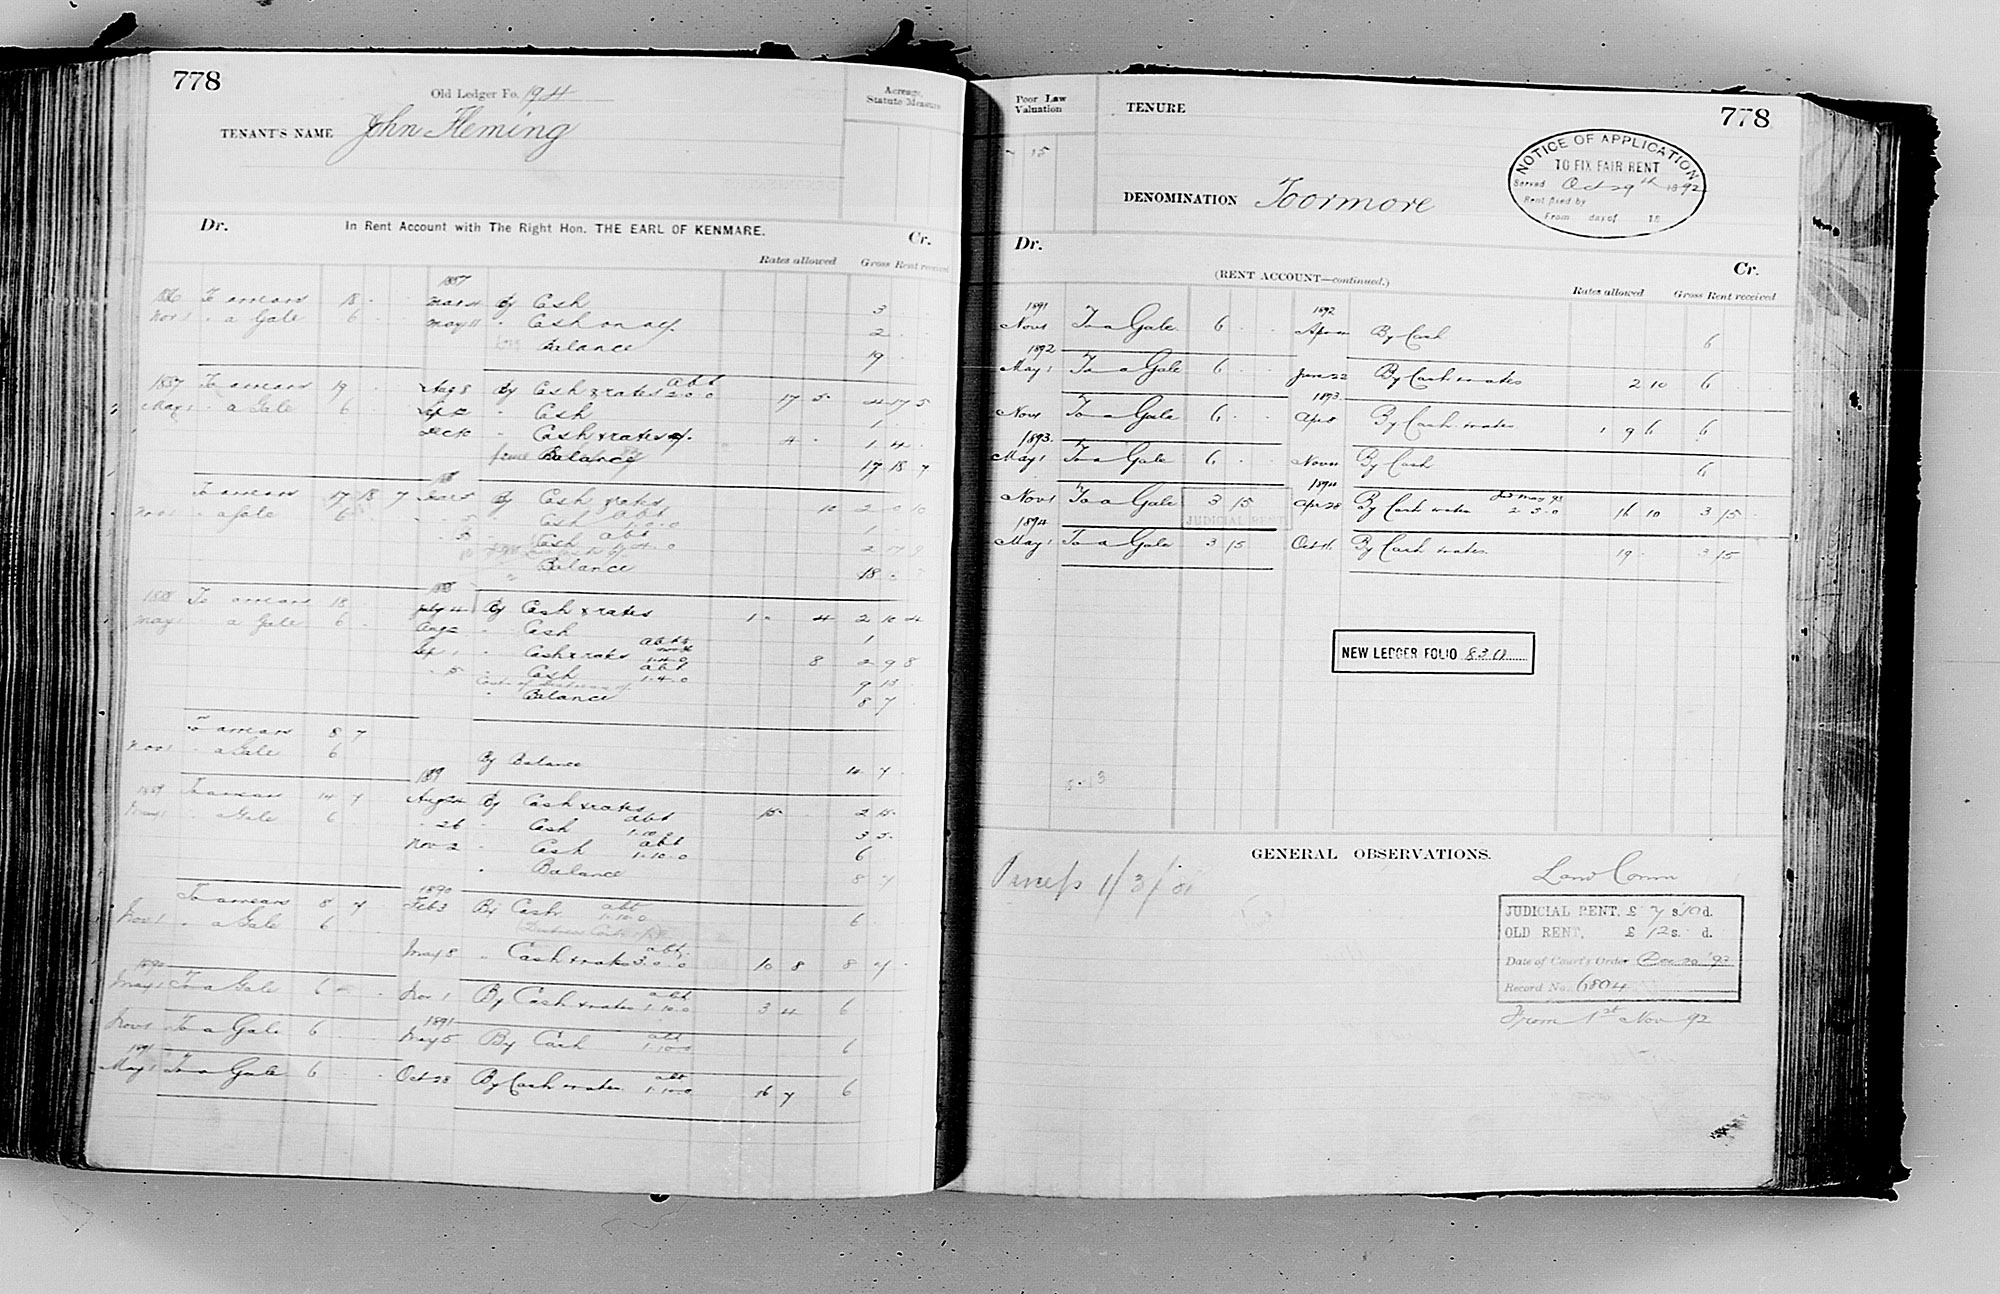 778
Old Ledger Fo. 194
TENANT'S NAME John Fleming
Acreage, Statute Measure
Dr. In Rent Account with The Right Hon. THE EARL OF KENMARE. Cr.
Rates allowed Gross Rent received
1887
1886 To arrears 18 Mar 4 By Cash 3
Nov 1 " a Gale 6 May 11 " Cash on a/c 2
Balance 19
1887 To arrears 19 Aug 8 By Cash & rates abt 2.0.0 17 5 4 17 5
May 1 " a Gale 6 Sep 2 " Cash 1
Dec 10 " Cash & rates 4 1 4
Balance 17 18 7
To arrears 17 18 7 By Cash & rates 10 2 0 10
Nov 1 " a Gale 6 5 Cash abt 1.0.0 1
5 Cash abt
Balance 18
1888
1888 To arrears 18 July 4 By Cash & rates 1 4 2 10 4
May 1 " a Gale 6 Aug 2 " Cash 1
Sep 1 " Cash & rates abt 8 2 9 8
" 5 Cash abt 1.4.0 9 13
" Balance 8 7
To arrears 8 7
Nov 1 " a Gale 6 By Balance 14 7
1889
1889 To arrears 14 7 Aug 22 By Cash & rates 15 2 15
May 1 " a Gale 6 " 26 " Cash abt 1.10.0 3 5
Nov 2 " Cash abt 1.10.0 6
" Balance 8 7
1890
To arrears 8 7 Feb 3 By Cash abt 1.10.0 6
Nov 1 " a Gale 6
May 8 " Cash & rates abt 3.0.0 10 8 8 7
1890
May 1 To a Gale 6 Nov 1 By Cash & rates abt 1.10.0 3 4 6
1891
Nov 1 To a Gale 6 May 5 By Cash abt 1.10.0 6
1891
May 1 To a Gale 6 Oct 28 By Cash & rates abt 1.10.0 16 7 6
778
Poor Law Valuation
15
TENURE
NOTICE OF APPLICATION
TO FIX FAIR RENT
Served Oct 29th 1892
Rent fixed by
From day of 18
DENOMINATION Toormore
Dr. Cr.
(RENT ACCOUNT—continued.)
Rates allowed Gross Rent received
1891 1892
Nov 1 To a Gale 6 By Cash 6
1892
May 1 To a Gale 6 June 22 By Cash & rates 2 10 6
1893
Nov 1 To a Gale 6 Apr 8 By Cash & rates 1 9 6 6
1893
May 1 To a Gale 6 Nov 11 By Cash 6
1894
Nov 1 To a Gale 3 15 Apr 28 By Cash & rates 2.5.0 16 10 3 15
JUDICIAL RENT
1894
May 1 To a Gale 3 15 Oct 16 By Cash & rates 19 3 15
NEW LEDGER FOLIO 830
GENERAL OBSERVATIONS.
Land Comm
JUDICIAL RENT, £ 7 s. 10 d.
OLD RENT, £ 12 s. d.
Date of Court's Order Dec 20 '93
Record No. 6804
From 1st Nov 92